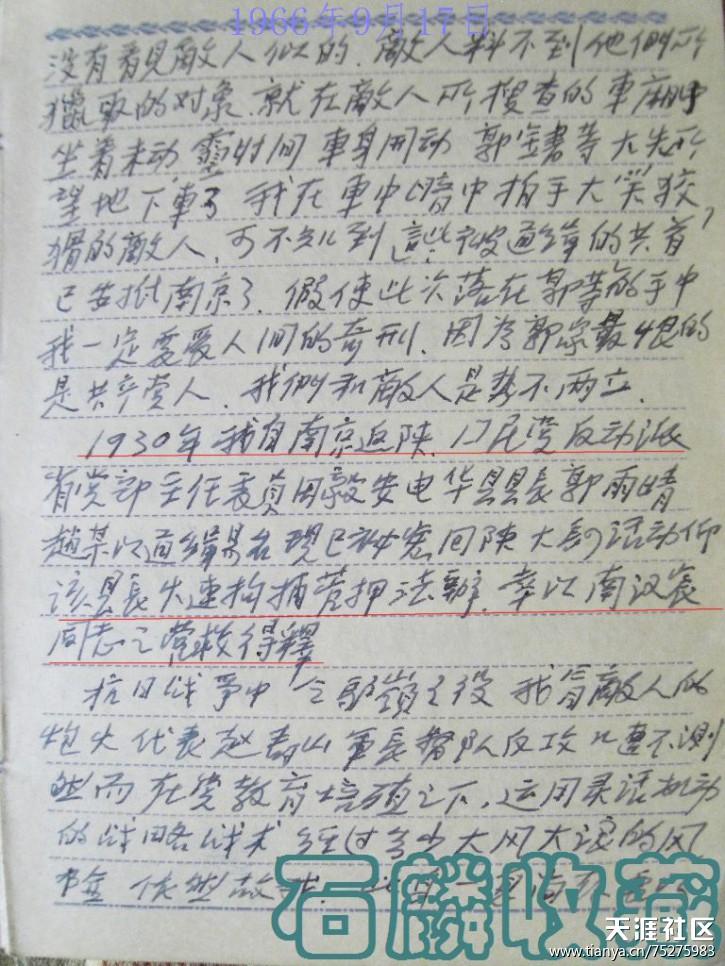 1966年9月17日
没有看見敵人似的.敵人料不到他們所
獵取的对象.就在敵人所搜查的車廂中
坐着未动,霎时间車身開动 郭金書等大失所
望地下車了 我在車中暗中拍手大笑狡
猾的敵人,可不知到這些被通緝的共首
已安抵南京了.假使此次落在郭等的手中
我一定要受人间的奇刑.因为郭家最恨的
是共产党人.我們和敵人是势不两立.
1930年我自南京返陕.国民党反动派
省党部主任委員田毅安电华县县長郭雨晴
趙某以通緝某名现已秘密回陕大肆活动仰
该县長火速拘捕管押法辦.幸以南汉宸
同志之营救得釋
抗日战争中 我冒敵人的
炮火代表赵寿山軍長督队反攻几遭不测
然而在党教育培植之下.运用灵活机动
的战略战术 经过多少大风大浪的风
险 依然故我.
石麟收藏
天涯社区
www.tianya.cn/75275983